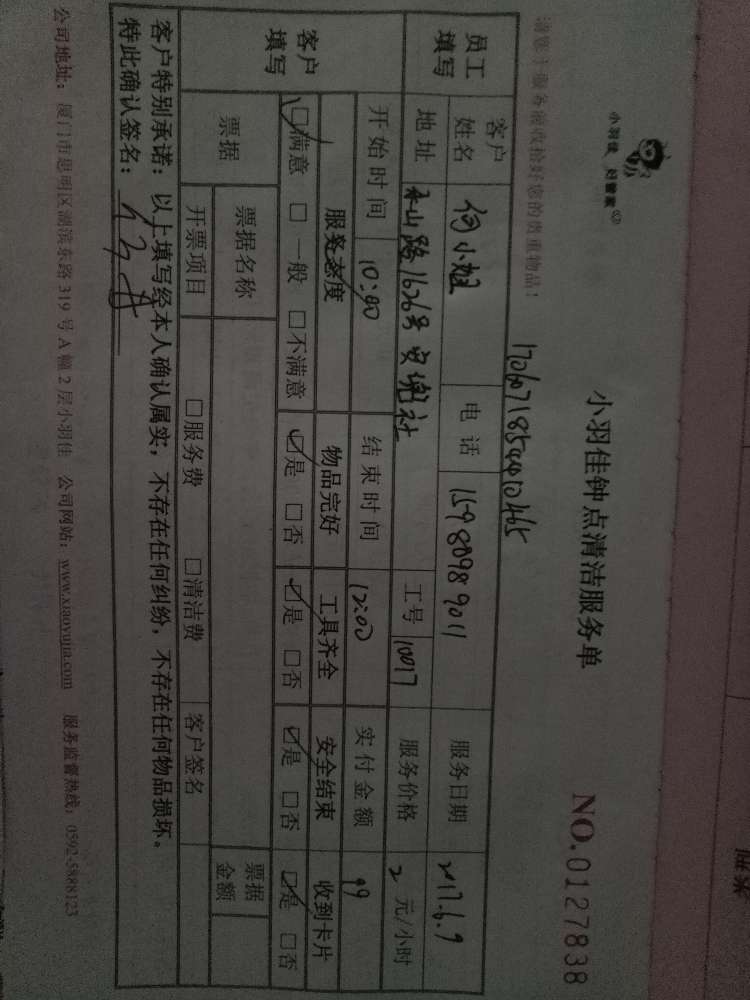 小羽佳 扫管家
小羽佳钟点清洁服务单
NO.0127838
清您于服务前收拾好您的贵重物品！
17060718594010465
员工填写
客户姓名 何小姐 电话 15980989011 服务日期 2017.6.9
地址 禾山路1626号 工号 10017 服务价格 2 元/小时
客户填写
开始时间 10:00 结束时间 12:00 实付金额 99
服务态度 物品完好 工具齐全 安全结束 收到卡片
☑满意 □一般 □不满意 ☑是 □否 ☑是 □否 ☑是 □否 ☑是 □否
票据 票据名称 票据金额
开票项目 □服务费 □清洁费 客户签名
客户特别承诺：以上填写经本人确认属实，不存在任何纠纷，不存在任何物品损坏。
特此确认签名：
公司地址：厦门市思明区湖滨东路 319 号 A 幢 2 层小羽佳 公司网站：www.xiaoyujia.com 服务监督热线：0592-5888123